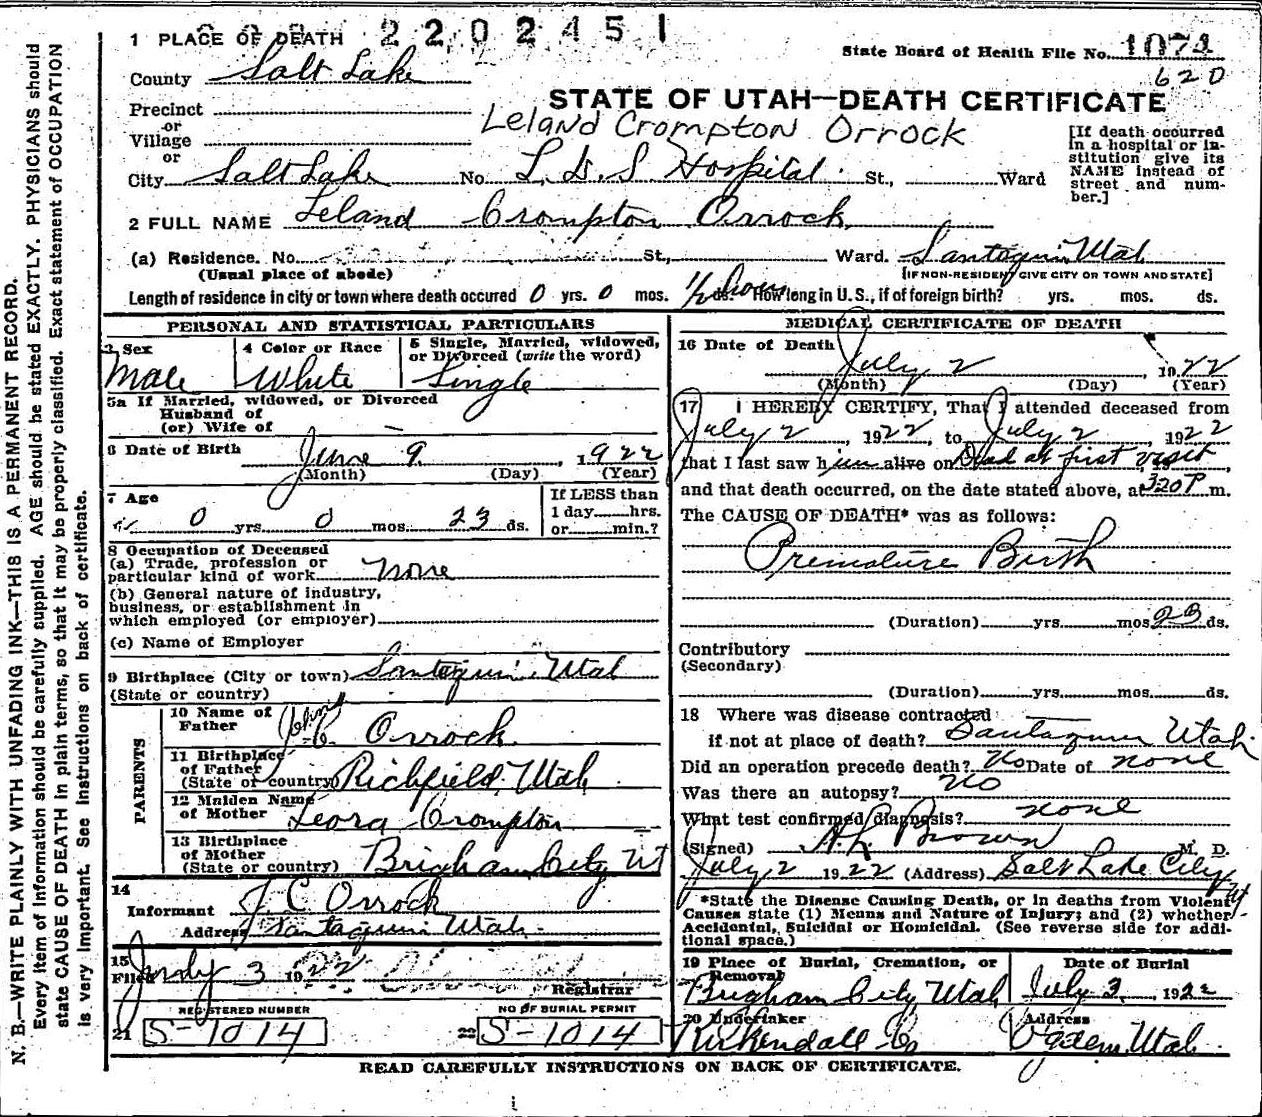 2202451
1 PLACE OF DEATH
State Board of Health File No. 1074
620
County Salt Lake
STATE OF UTAH—DEATH CERTIFICATE
Precinct
or
Village
or
Leland Crompton Orrock
[If death occurred in a hospital or institution give its NAME instead of street and number.]
City Salt Lake No. L. D. S Hospital St., Ward
2 FULL NAME Leland Crompton Orrock
(a) Residence. No. St., Ward. Santaquin Utah
(Usual place of abode) [IF NON-RESIDENT GIVE CITY OR TOWN AND STATE]
Length of residence in city or town where death occured 0 yrs. 0 mos. 1/2 hour ds. How long in U.S., if of foreign birth? yrs. mos. ds.
PERSONAL AND STATISTICAL PARTICULARS
3 Sex Male
4 Color or Race White
5 Single, Married, widowed, or Divorced (write the word) Single
5a If Married, widowed, or Divorced
Husband of
(or) Wife of -
6 Date of Birth June 9. 1922
(Month) (Day) (Year)
7 Age 0 yrs. 0 mos. 23 ds.
If LESS than
1 day hrs.
or min.?
8 Occupation of Deceased
(a) Trade, profession or
particular kind of work none
(b) General nature of industry,
business, or establishment in
which employed (or employer)
(c) Name of Employer
9 Birthplace (City or town) Santaquin Utah
(State or country)
PARENTS
10 Name of Father John C. Orrock
11 Birthplace of Father (State or country) Richfield, Utah
12 Maiden Name of Mother Leora Crompton
13 Birthplace of Mother (State or country) Brigham City Ut
14
Informant J. C Orrock
Address Santaquin Utah.
15
Filed July 3 1922
Registrar
REGISTERED NUMBER
21 S-1014
NO OF BURIAL PERMIT
22 S-1014
MEDICAL CERTIFICATE OF DEATH
16 Date of Death July 2, 1922
(Month) (Day) (Year)
17 I HEREBY CERTIFY, That I attended deceased from
July 2, 1922, to July 2, 1922
that I last saw him alive on Dead at first visit
and that death occurred, on the date stated above, at 320 P m.
The CAUSE OF DEATH* was as follows:
Premature Birth
(Duration) yrs. mos. 23 ds.
Contributory
(Secondary)
(Duration) yrs. mos. ds.
18 Where was disease contracted
if not at place of death? Santaquin Utah.
Did an operation precede death? No Date of none
Was there an autopsy? No
What test confirmed diagnosis? none
(Signed) A L Brown M. D.
July 2 1922 (Address) Salt Lake City Ut
*State the Disease Causing Death, or in deaths from Violent
Causes state (1) Means and Nature of Injury; and (2) whether
Accidental, Suicidal or Homicidal. (See reverse side for addi-
tional space.)
19 Place of Burial, Cremation, or Removal
Brigham City Utah
Date of Burial
July 3, 1922
20 Undertaker
Kirkendall Co
Address
Ogden, Utah.
READ CAREFULLY INSTRUCTIONS ON BACK OF CERTIFICATE.
N. B.—WRITE PLAINLY WITH UNFADING INK—THIS IS A PERMANENT RECORD.
Every item of information should be carefully supplied. AGE should be stated EXACTLY. PHYSICIANS should
state CAUSE OF DEATH in plain terms, so that it may be properly classified. Exact statement of OCCUPATION
is very important. See instructions on back of certificate.